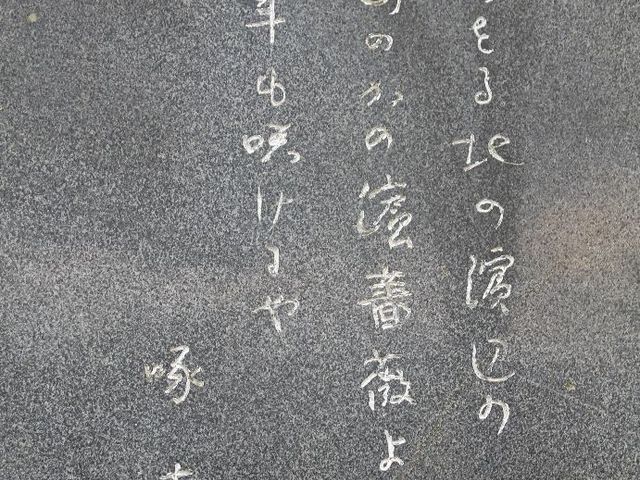 をる北の濱辺の
のかの濱薔薇よ
年も咲けるや
啄